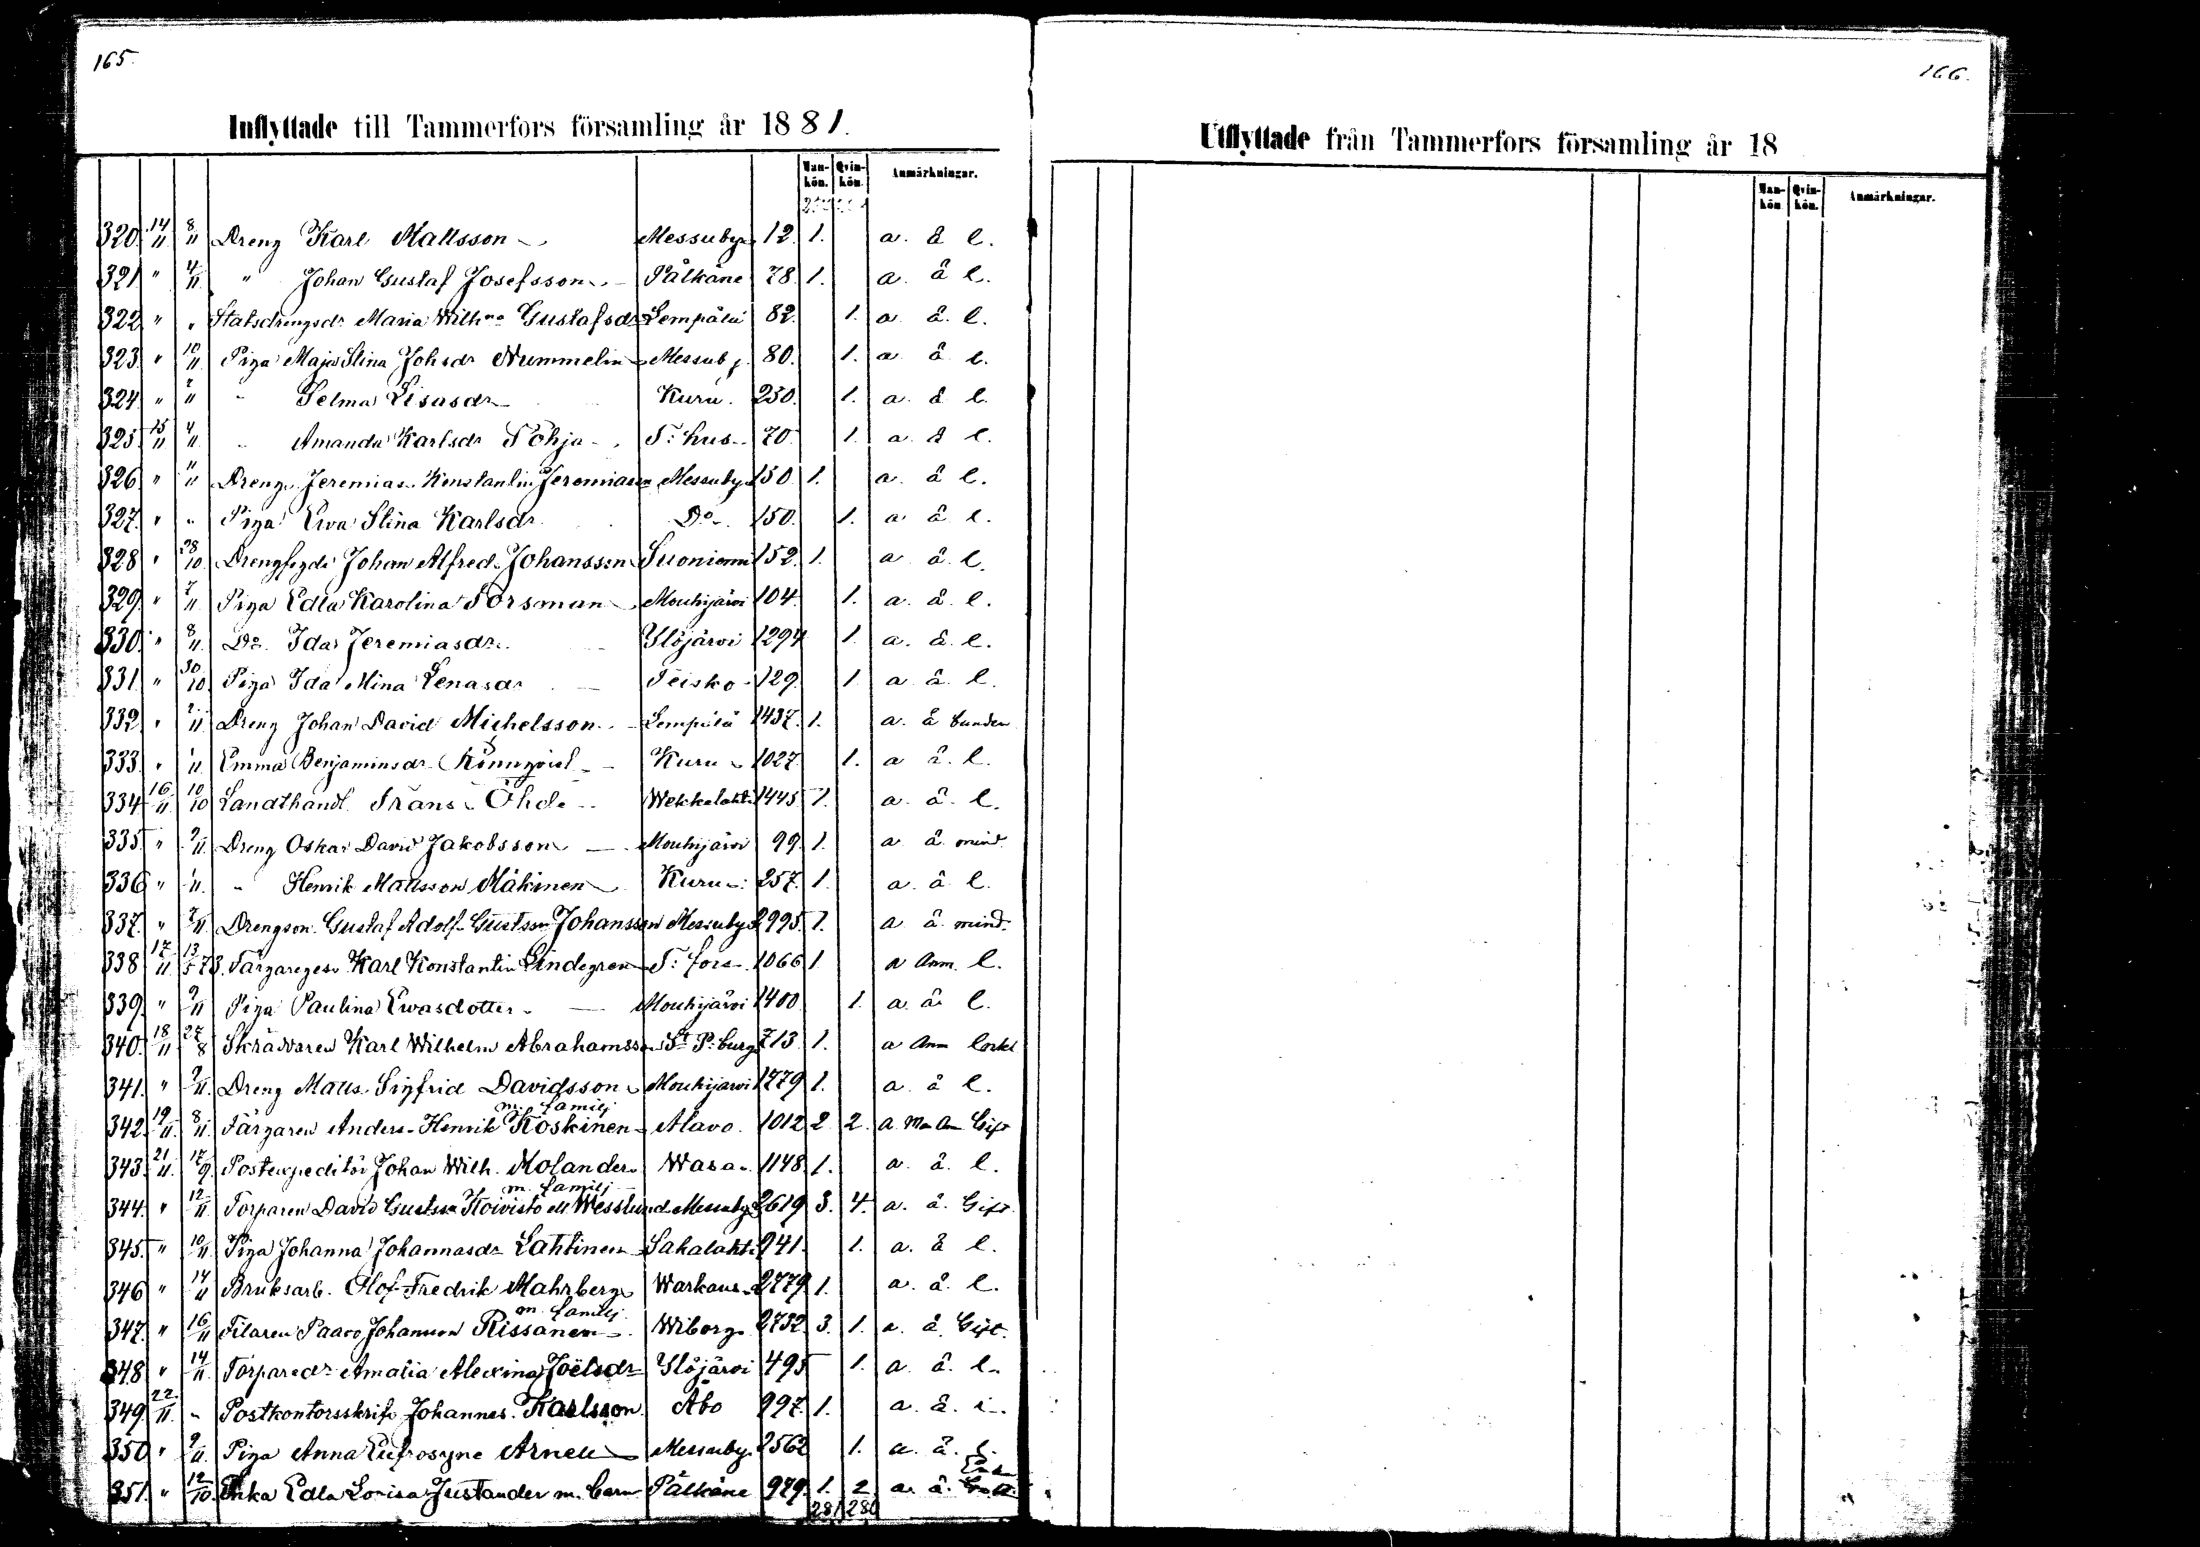 165.
Inflyttade till Tammerfors församling år 1881.
Man-kön. Qvin-kön. Anmärkningar.
320. 14/11 8/11 Dreng Karl Mattsson Messuby 12. 1. a. å l.
321 " 4/11 " Johan Gustaf Josefsson Pälkäne 78. 1. a. å l.
322 " " Statsdrengsdr Maria Wilhna Gustafsdr Lempälä 82. 1. a. å. l.
323. " 10/11 Piga Maja Stina Johsdr Nummelin Messuby 80. 1. a å l.
324. " 2/11 " Selma Lisasdr Kuru. 250. 1. a. å l.
325. 15/11 4/11 " Amanda Karlsdr Pohja T:hus 70. 1. a. å l.
326. " 11/11 Dreng Jeremias Konstantin Jeremiasson Messuby 150. 1. a. å l.
327. " " Piga Ewa Stina Karlsdr Do 150. 1. a. å l.
328 " 28/10 Drengfogde Johan Alfred Johansson Suoniemi 152. 1. a å. l.
329. " 7/11 Piga Edla Karolina Forsman Mouhijärvi 104. 1. a. å. l.
330. " 8/11 Do. Ida Jeremiasdr. Ylöjärvi 1294 1. a. å. l.
331. " 30/10 Piga Ida Mina Lenasdr Teisko 129. 1 a å. l.
332. " 2/11 Dreng Johan David Michelsson Lempälä 1437. 1. a. å bunden
333. " 1/11 Emma Benjaminsdr Kinnqvist Kuru 1027. 1. a å. l.
334 16/11 10/10 Landthandl. Frans Öhde Wekkelaht. 1445 1. a. å. l.
335. " 9/11 Dreng Oskar David Jakobsson Mouhijärvi 99. 1. a å. mind.
336 " 1/11. " Henrik Mattsson Mäkinen Kuru 257. 1. a. å l.
337. " 7/11 Drengson Gustaf Adolf Gustsson Johansson Messuby 2995. 1. a å mind.
338 17/11 13/5 73. Färgareges. Karl Konstantin Lindegren T:fors 1066 1 a Anm. l.
339. " 9/11 Piga Paulina Ewasdotter Mouhijärvi 1400. 1. a. å l.
340. 18/11 27/8 Skräddaren Karl Wilhelm Abrahamsson St P:burg 713. 1. a Anm
341. " 9/11. Dreng Matts Sigfrid Davidsson Mouhijärvi 1779 1. a. å l.
m. familj
342. 19/11. 8/11. Färgaren Anders Henrik Koskinen Alavo. 1012 2 2. a Gift
343. 21/11. 17/9. Postexpeditör Johan Wilh. Molander Wasa 1148 1. a. å. l.
m. familj
344. " 12/11 Torparen David Gustsson Koivisto ell Wesslund Messuby 2619 3. 4. a. å. Gift.
345. " 10/11. Piga Johanna Johannasdr Lahtinen Sahalahti 941. 1. a. å l.
346 " 14/11 Bruksarb. Olof Fredrik Mahrberg Warkaus 2779 1. a. å. l.
m. familj.
347. " 16/11 Filaren Paavo Johansson Rissanen Wiborg 2732 3. 1. a. å. Gift.
348 " 14/11. Torparedr Amalia Alexina Joëlsdr Ylöjärvi 495 1. a. å. l.
349. 22/11. " Postkontorsskrifv. Johannes Karlsson Åbo 997. 1. a. å.
350 " 9/11. Piga Anna Eufrosyne Arnell Messuby 2562 1. a. å. l.
351. " 12/10. Enka Edla Lovisa Justander m. barn Pälkäne 979. 1. 2 a. å. Enka
281 280
166.
Utflyttade från Tammerfors församling år 18
Man-kön Qvin-kön. Anmärkningar.